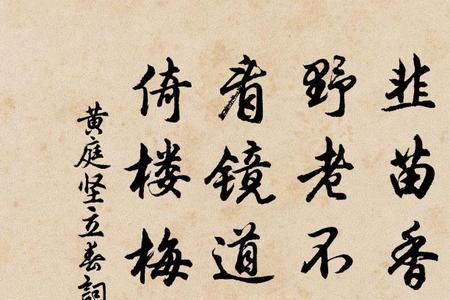 韭苗香
野老不
看镜道
倚楼梅
黄庭坚立春词